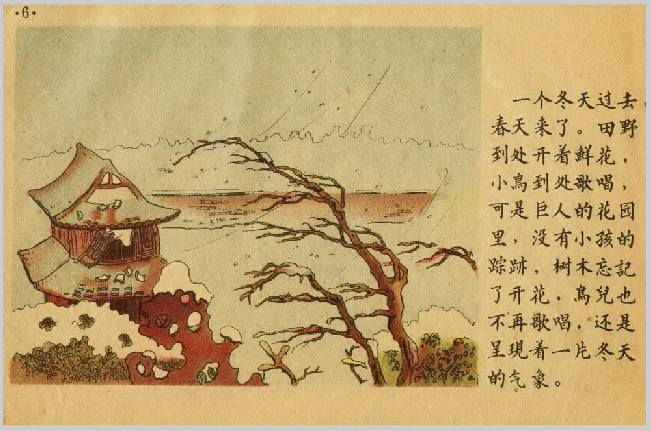 ·6·
一个冬天过去，
春天来了。田野
到处开着鮮花，
小鳥到处歌唱，
可是巨人的花园
里，没有小孩的
踪跡，树木忘記
了开花，鳥兒也
不再歌唱，还是
呈現着一片冬天
的气象。